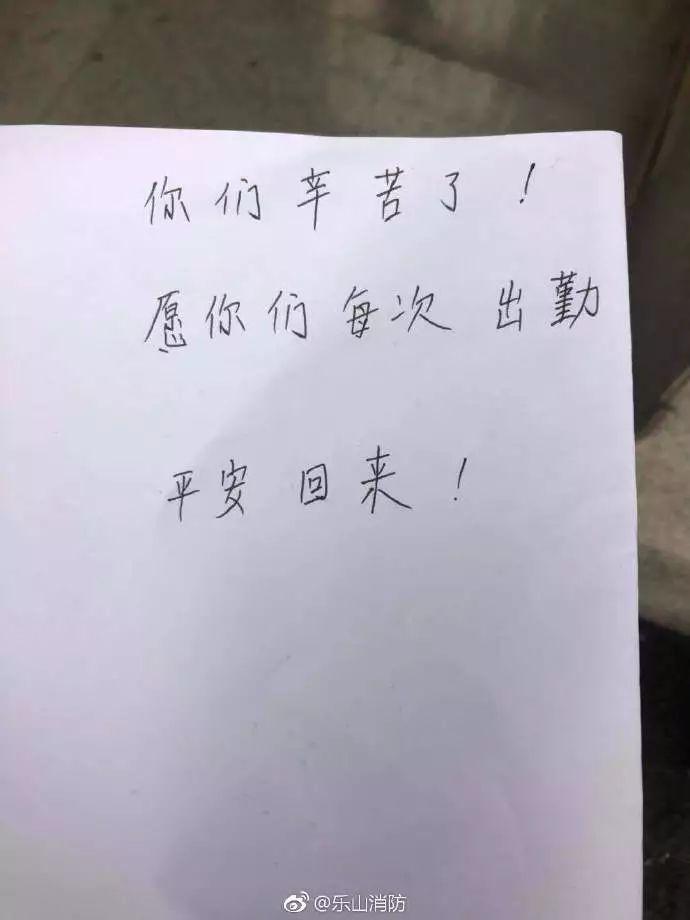 你们辛苦了！
愿你们每次出勤
平安回来！
@乐山消防